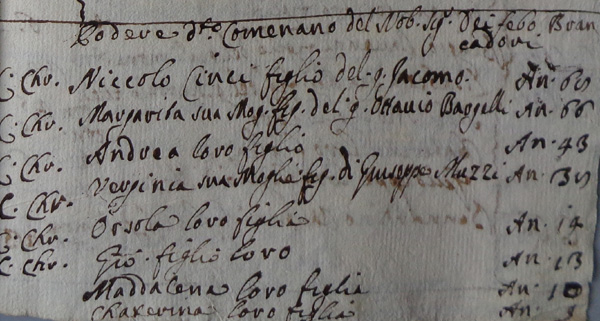 Podere d:to Comenano del Nob. Sig: Deifebo Bran
cadori.
C. Chr. Niccolo Cinci figlio del q. Jacomo. An. 60
C. Chr. Margarita sua Mog. fig. del q. Ottavio Baggelli An. 66
C. Chr. Andrea loro figlio An. 43
C. Chr. Verginia sua Moglie fig. di Giuseppe Muzzi An. 39
C. Chr. Orsola loro figlia An. 14
C. Chr. Gio. figlio loro An. 13
Maddalena loro figlia An. 10
Chaterina loro figlia An.